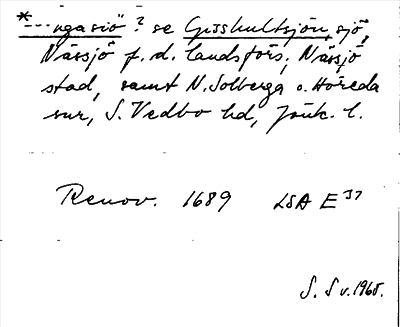 *---ngasiö" ? se Gisshultsjön, sjö,
Nässjö f.d. landsförs., Nässjö
stad, samt N. Solberga o. Höreda
snr, S. Vedbo hd, Jönk. l.
Renov. 1689 LSA E 37
S. Sv. 1965.